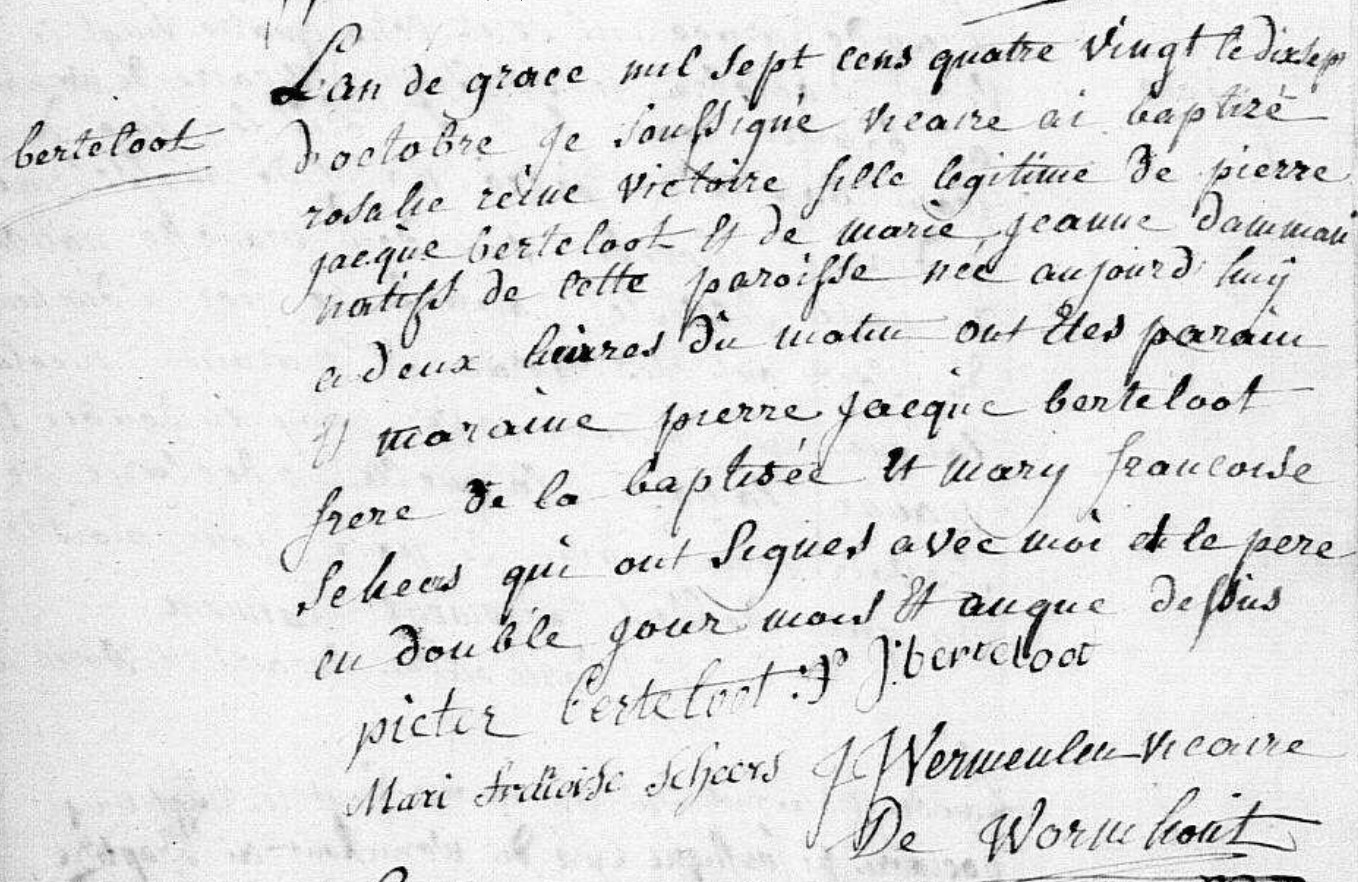 Lan de grace mil sept cens quatre vingt le dixsept
berteloot
d'octobre je soussigné vicaire ai baptizé
rosalie reine victoire fille legitime de pierre
jacque berteloot et de marie jeanne damman
natifs de cette paroisse née aujourd'huy
a deux heures du matin ont etes parain
et maraine pierre jacque berteloot
frere de la baptisée et mary francoise
scheers qui ont signes avec moi et le pere
en double jour mois et anque dessus
pieter berteloot P J berteloot
Mari frαcoise scheers J J Wermeulen vicaire
De Wormhout